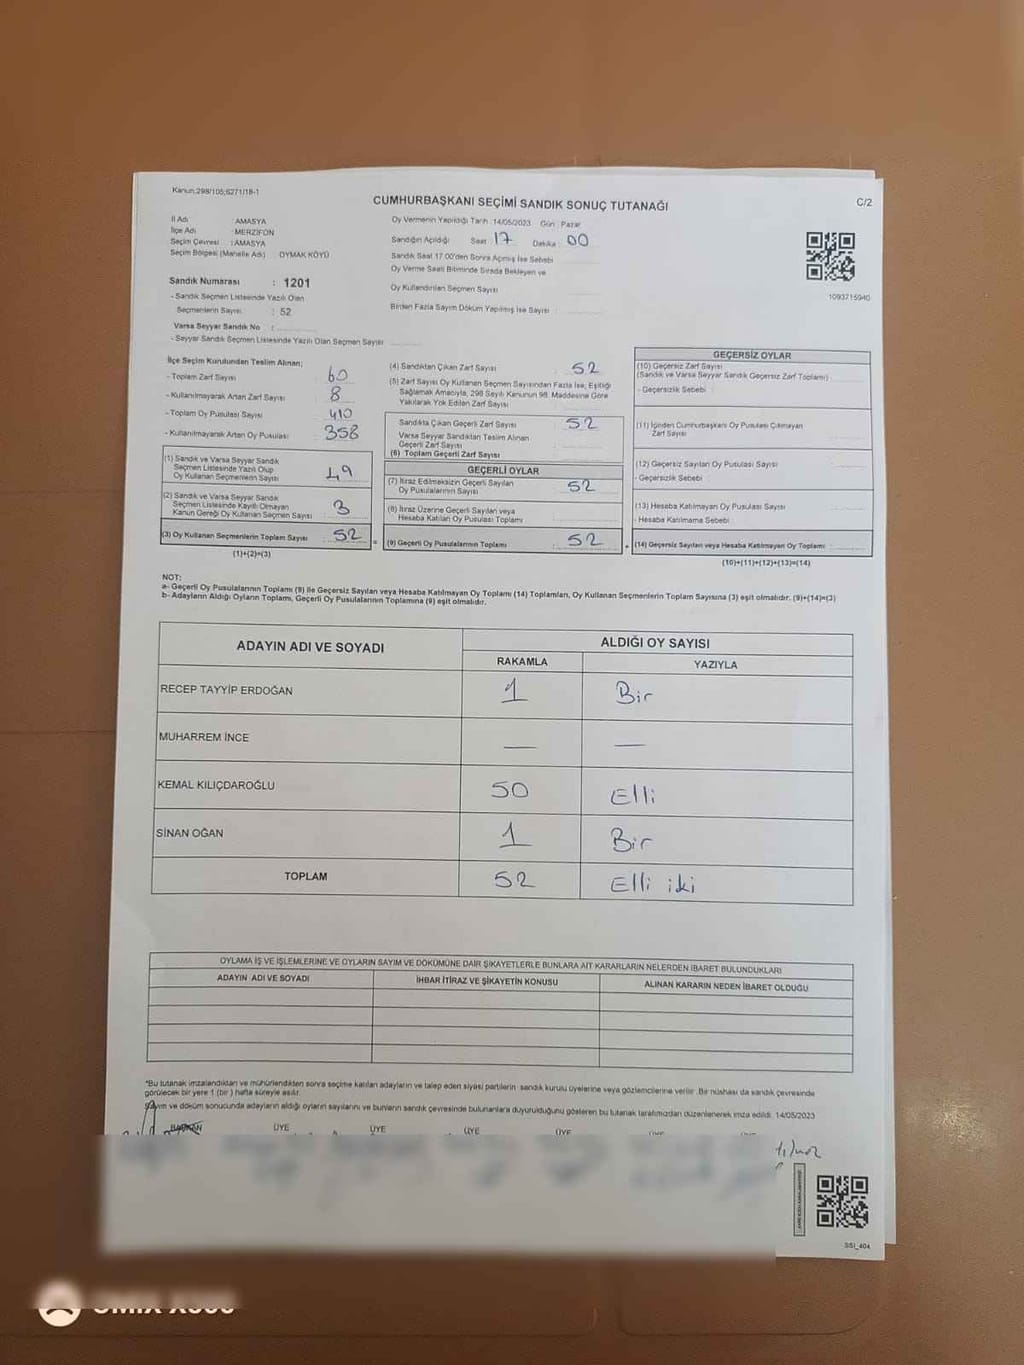 Kanun:298/105;6271/18-1
CUMHURBAŞKANI SEÇİMİ SANDIK SONUÇ TUTANAĞI
C/2
İl Adı : AMASYA
İlçe Adı : MERZİFON
Seçim Çevresi : AMASYA
Seçim Bölgesi (Mahalle Adı) : OYMAK KÖYÜ
Sandık Numarası : 1201
- Sandık Seçmen Listesinde Yazılı Olan
Seçmenlerin Sayısı : 52
Varsa Seyyar Sandık No :
- Seyyar Sandık Seçmen Listesinde Yazılı Olan Seçmen Sayısı
Oy Vermenin Yapıldığı Tarih 14/05/2023 Gün : Pazar
Sandığın Açıldığı Saat 17 Dakika : 00
Sandık Saat 17.00'den Sonra Açmış İse Sebebi
Oy Verme Saati Bitiminde Sırada Bekleyen ve
Oy Kullandırılan Seçmen Sayısı
Birden Fazla Sayım Döküm Yapılmış İse Sayısı
1093715940
İlçe Seçim Kurulundan Teslim Alınan;
- Toplam Zarf Sayısı : 60
- Kullanılmayarak Artan Zarf Sayısı : 8
- Toplam Oy Pusulası Sayısı : 410
- Kullanılmayarak Artan Oy Pusulası : 358
(1) Sandık ve Varsa Seyyar Sandık
Seçmen Listesinde Yazılı Olup
Oy Kullanan Seçmenlerin Sayısı 49
(2) Sandık ve Varsa Seyyar Sandık
Seçmen Listesinde Kayıtlı Olmayan
Kanun Gereği Oy Kullanan Seçmen Sayısı 3
(3) Oy Kullanan Seçmenlerin Toplam Sayısı 52
(1)+(2)=(3)
(4) Sandıktan Çıkan Zarf Sayısı : 52
(5) Zarf Sayısı Oy Kullanan Seçmen Sayısından Fazla İse, Eşitliği
Sağlamak Amacıyla, 298 Sayılı Kanunun 98. Maddesine Göre
Yakılarak Yok Edilen Zarf Sayısı
Sandıkta Çıkan Geçerli Zarf Sayısı : 52
Varsa Seyyar Sandıktan Teslim Alınan
Geçerli Zarf Sayısı
(6) Toplam Geçerli Zarf Sayısı
GEÇERLİ OYLAR
(7) İtiraz Edilmeksizin Geçerli Sayılan
Oy Pusulalarının Sayısı : 52
(8) İtiraz Üzerine Geçerli Sayılan veya
Hesaba Katılan Oy Pusulası Toplamı
(9) Geçerli Oy Pusulalarının Toplamı : 52
GEÇERSİZ OYLAR
(10) Geçersiz Zarf Sayısı
(Sandık ve Varsa Seyyar Sandık Geçersiz Zarf Toplamı)
- Geçersizlik Sebebi :
(11) İçinden Cumhurbaşkanı Oy Pusulası Çıkmayan
Zarf Sayısı
(12) Geçersiz Sayılan Oy Pusulası Sayısı
- Geçersizlik Sebebi :
(13) Hesaba Katılmayan Oy Pusulası Sayısı
- Hesaba Katılmama Sebebi :
(14) Geçersiz Sayılan veya Hesaba Katılmayan Oy Toplamı :
(10)+(11)+(12)+(13)=(14)
NOT:
a- Geçerli Oy Pusulalarının Toplamı (9) ile Geçersiz Sayılan veya Hesaba Katılmayan Oy Toplamı (14) Toplamları, Oy Kullanan Seçmenlerin Toplam Sayısına (3) eşit olmalıdır. (9)+(14)=(3)
b- Adayların Aldığı Oyların Toplamı, Geçerli Oy Pusulalarının Toplamına (9) eşit olmalıdır.
ADAYIN ADI VE SOYADI ALDIĞI OY SAYISI
RAKAMLA YAZIYLA
RECEP TAYYİP ERDOĞAN 1 Bir
MUHARREM İNCE — —
KEMAL KILIÇDAROĞLU 50 Elli
SİNAN OĞAN 1 Bir
TOPLAM 52 Elli iki
OYLAMA İŞ VE İŞLEMLERİNE VE OYLARIN SAYIM VE DÖKÜMÜNE DAİR ŞİKAYETLERLE BUNLARA AİT KARARLARIN NELERDEN İBARET BULUNDUKLARI
ADAYIN ADI VE SOYADI İHBAR İTİRAZ VE ŞİKAYETİN KONUSU ALINAN KARARIN NEDEN İBARET OLDUĞU
*Bu tutanak imzalandıktan ve mühürlendikten sonra seçime katılan adayların ve talep eden siyasi partilerin sandık kurulu üyelerine veya gözlemcilerine verilir. Bir nüshası da sandık çevresinde
görülecek bir yere 1 (bir) hafta süreyle asılır.
Sayım ve döküm sonucunda adayların aldığı oyların sayılarını ve bunların sandık çevresinde bulunanlara duyurulduğunu gösteren bu tutanak tarafımızdan düzenlenerek imza edildi. 14/05/2023
BAŞKAN ÜYE ÜYE ÜYE ÜYE
SSI_404